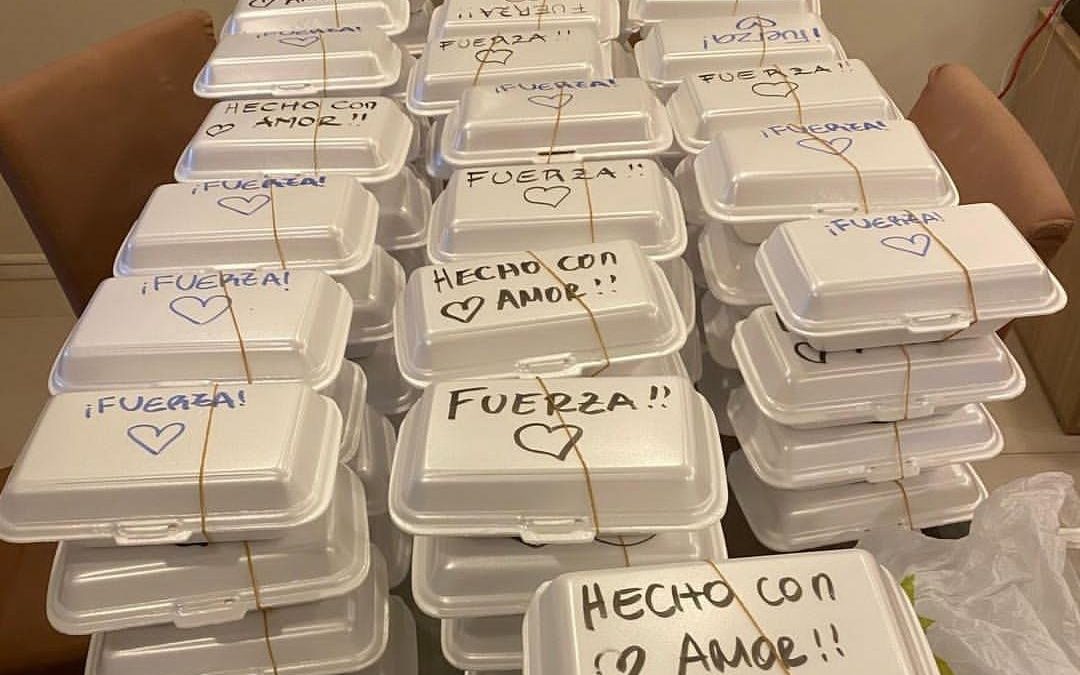 HECHO CON
AMOR!!
¡FUERZA!
HECHO CON
AMOR!!
¡FUERZA!
¡FUERZA!
¡FUERZA!
¡FUERZA!
FUERZA!!
¡FUERZA!
FUERZA!!
HECHO CON
AMOR!!
FUERZA!!
HECHO CON
AMOR!!
¡Fuerza!
FUERZA!!
¡FUERZA!
¡FUERZA!